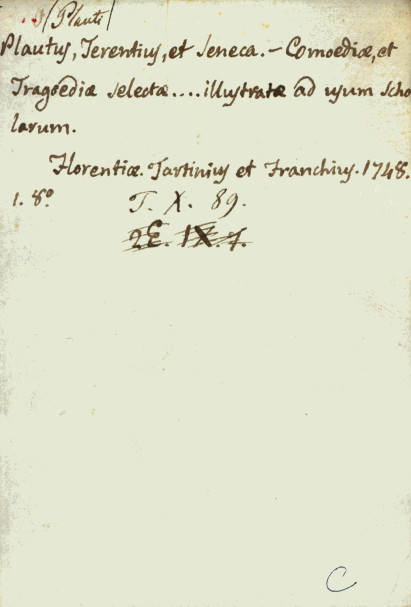 (Plauti)
Plautus, Terentius, et Seneca. - Comoediæ, et
Tragoediæ selectæ.... illustratæ ad usum scho
larum.
Florentiæ. Tartinius et Franchius. 1748.
1. 8º T. X. 89.
2E. IX. 7.
C